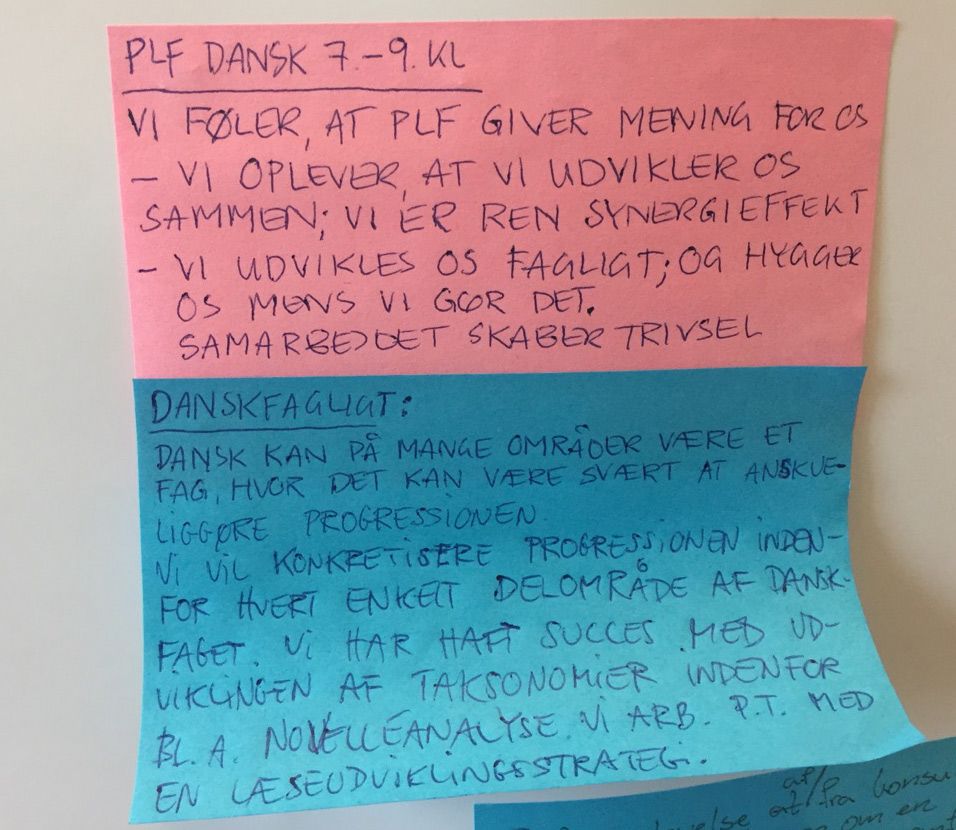 PLF DANSK 7.-9. KL
VI FØLER, AT PLF GIVER MENING FOR OS
- VI OPLEVER, AT VI UDVIKLER OS
SAMMEN; VI ER REN SYNERGIEFFEKT
- VI UDVIKLES OS FAGLIGT; OG HYGGER
OS MENS VI GØR DET.
SAMARBEJDET SKABER TRIVSEL
DANSKFAGLIGT:
DANSK KAN PÅ MANGE OMRÅDER VÆRE ET
FAG, HVOR DET KAN VÆRE SVÆRT AT ANSKUE-
LIGGØRE PROGRESSIONEN.
VI VIL KONKRETISERE PROGRESSIONEN INDEN-
FOR HVERT ENKELT DELOMRÅDE AF DANSK-
FAGET. VI HAR HAFT SUCCES MED UD-
VIKLINGEN AF TAKSONOMIER INDENFOR
BL. A. NOVELLEANALYSE. VI ARB. P.T. MED
EN LÆSEUDVIKLINGSSTRATEGI.
af/fra
om en